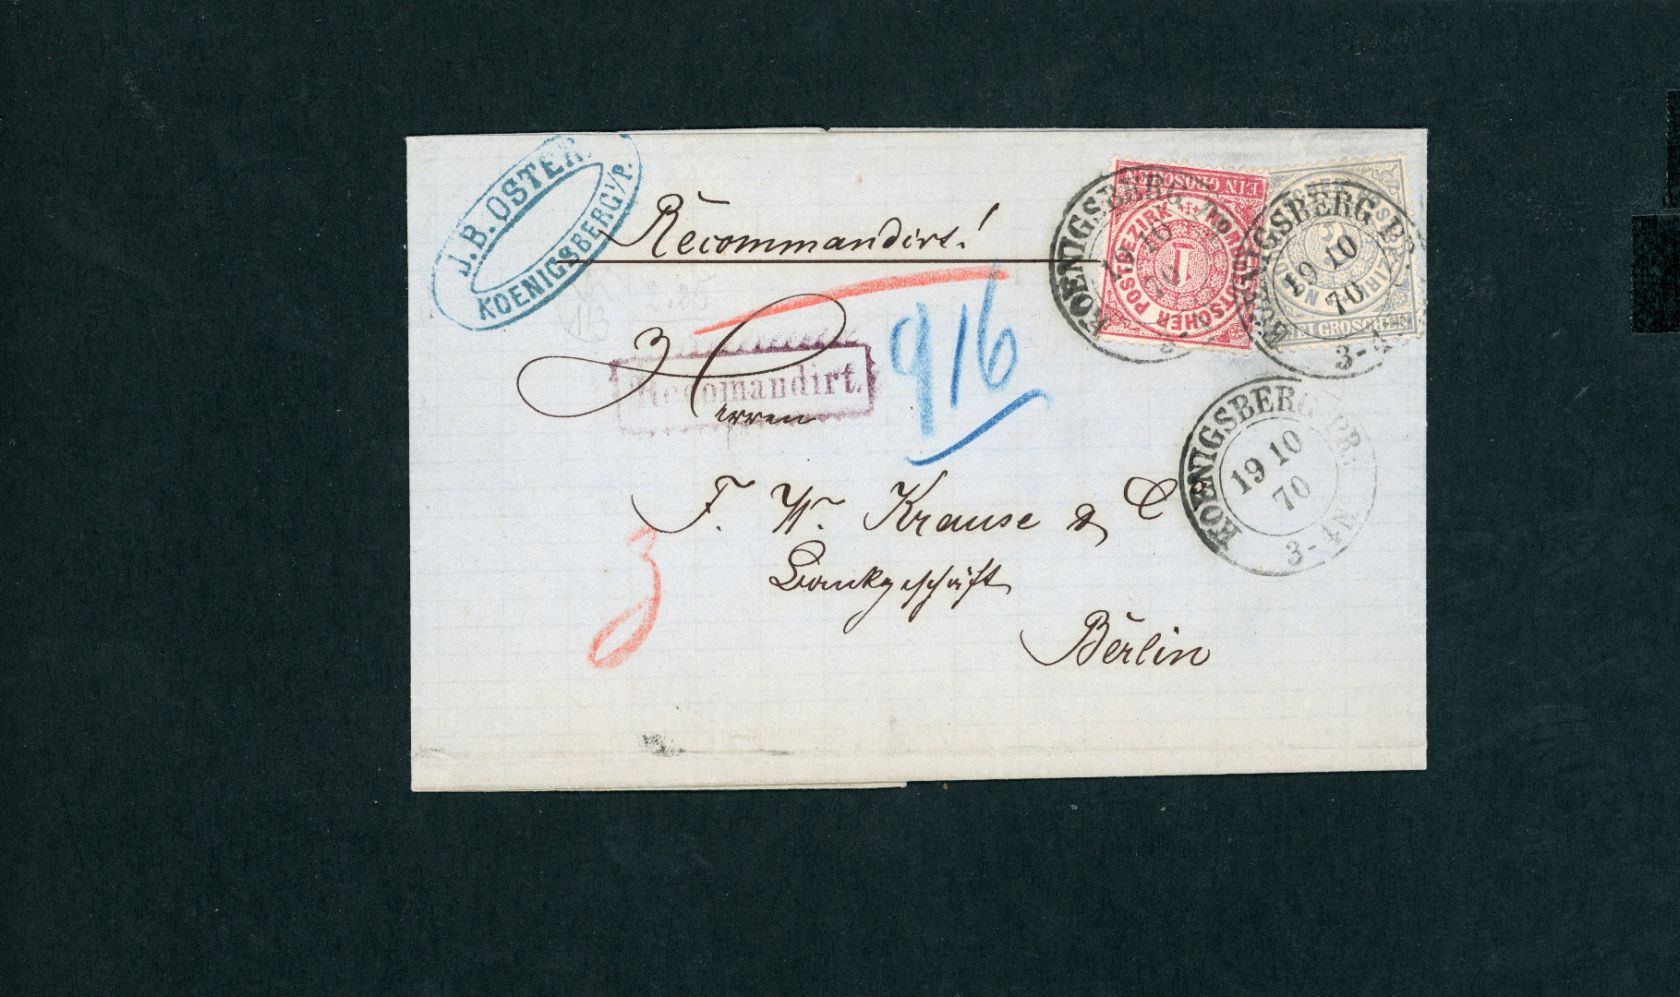 J. B. OSTER.
KOENIGSBERG I/P.
Recommandirt!
EIN GROSCHEN
NORDDEUTSCHER POSTBEZIRK
1
GROSCHEN
KOENIGSBERG PR.
19 10
70
KOENIGSBERG PR.
19 10
70
3-4
916
Recomandirt.
Herren
KOENIGSBERG PR.
19 10
70
3-4N
F. W. Krause & C
Bankgeschäft
3
Berlin